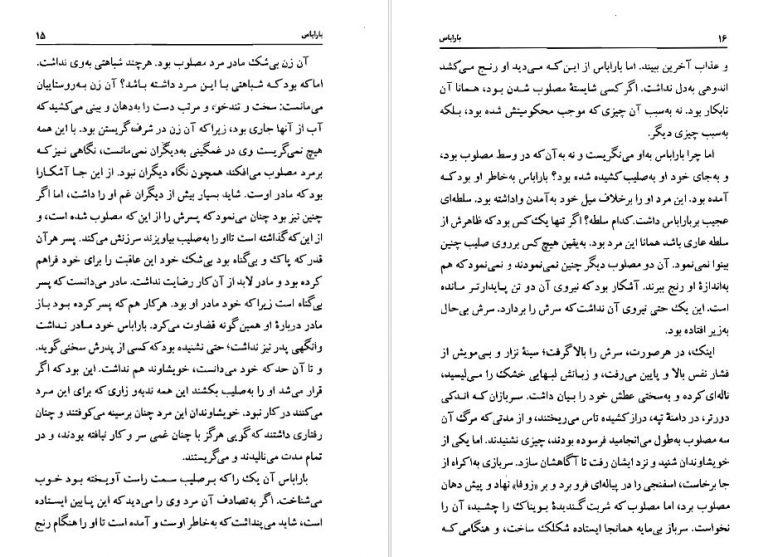 ۱۵
باراباس
آن زن بی‌شک مادر مرد مصلوب بود. هرچند شباهتی به‌وی نداشت.
اما که بود که شباهتی با این مرد داشته باشد؟ آن زن به‌روستاییان
می‌مانست: سخت و تندخو، و مرتب دست را به‌دهان و بینی می‌کشید که
آب از آنها جاری بود، زیرا که آن زن در شرف گریستن بود. با این همه
هیچ نمی‌گریست وی در غمگینی به‌دیگران نمی‌مانست، نگاهی نیز که
برمرد مصلوب می‌افکند همچون نگاه دیگران نبود. از این جا آشکارا
بود که مادر اوست. شاید بسیار بیش از دیگران غم او را داشت، اما اگر
چنین نیز بود چنان می‌نمود که پسرش را از این که مصلوب شده است، و
از این که گذاشته است تا او را به‌صلیب بیاویزند سرزنش می‌کند. پسر هرآن
قدر که پاک و بی‌گناه بود بی‌شک خود این عاقبت را برای خود فراهم
کرده بود و مادر لابد از آن کار رضایت نداشت. مادر می‌دانست که پسر
بی‌گناه است زیرا که خود مادر او بود. هرکار هم که پسر کرده بود باز
مادر دربارهٔ او همین گونه قضاوت می‌کرد. باراباس خود مادر نداشت
وانگهی پدر نیز نداشت؛ حتی نشنیده بود که کسی از پدرش سخنی گوید.
و تا آن حد که خود می‌دانست، خویشاوند هم نداشت. این بود که اگر
قرار می‌شد او را به‌صلیب بکشند این همه ندبه و زاری که برای این مرد
می‌کنند در کار نبود. خویشاوندان این مرد چنان برسینه می‌کوفتند و چنان
رفتاری داشتند که گویی هرگز با چنان غمی سر و کار نیافته بودند، و در
تمام مدت می‌نالیدند و می‌گریستند.
باراباس آن یک را که برصلیب سمت راست آویخته بود خوب
می‌شناخت. اگر به‌تصادف آن مرد وی را می‌دید که این پایین ایستاده
است، شاید می‌پنداشت که به‌خاطر اوست و آمده است تا او را هنگام رنج
۱۶
باراباس
و عذاب آخرین ببیند. اما باراباس از این که می‌دید او رنج می‌کشد
اندوهی به‌دل نداشت. اگر کسی شایستهٔ مصلوب شدن بود، همانا آن
نابکار بود. نه به‌سبب آن چیزی که موجب محکومیتش شده بود، بلکه
به‌سبب چیزی دیگر.
اما چرا باراباس به‌او می‌نگریست و نه به‌آن که در وسط مصلوب بود،
و به‌جای خود او به‌صلیب کشیده شده بود؟ باراباس به‌خاطر او بود که
آمده بود. این مرد او را برخلاف میل خود به‌آمدن واداشته بود. سلطه‌ای
عجیب برباراباس داشت. کدام سلطه؟ اگر تنها یک کس بود که ظاهرش از
سلطه عاری باشد همانا این مرد بود. به‌یقین هیچ کس برروی صلیب چنین
بینوا نمی‌نمود. آن دو مصلوب دیگر چنین نمی‌نمودند و نمی‌نمود که هم
به‌اندازهٔ او رنج ببرند. آشکار بود که نیروی آن دو تن پایدارتر مانده
است. این یک حتی نیروی آن نداشت که سرش را بردارد. سرش بی‌حال
به‌زیر افتاده بود.
اینک، در هرصورت، سرش را بالا گرفت؛ سینهٔ نزار و بی‌مویش از
فشار نفس بالا و پایین می‌رفت، و زبانش لبهایی خشک را می‌لیسید،
ناله‌ای کرده و به‌سختی عطش خود را بیان داشت. سربازان که اندکی
دورتر، در دامنهٔ تپه، دراز کشیده تاس می‌ریختند، و از مدتی که مرگ آن
سه مصلوب به‌طول می‌انجامید فرسوده بودند، چیزی نشنیدند. اما یکی از
خویشاوندان شنید و نزد ایشان رفت تا آگاهشان سازد. سربازی به‌اکراه از
جا برخاست، اسفنجی را در پیاله‌ای فرو برد و بر «زوفا» نهاد و پیش دهان
مصلوب برد، اما مصلوب که شربت گندیدهٔ بویناک را چشید، آن را
نخواست. سرباز بی‌مایه همانجا ایستاده شکلک ساخت، و هنگامی که